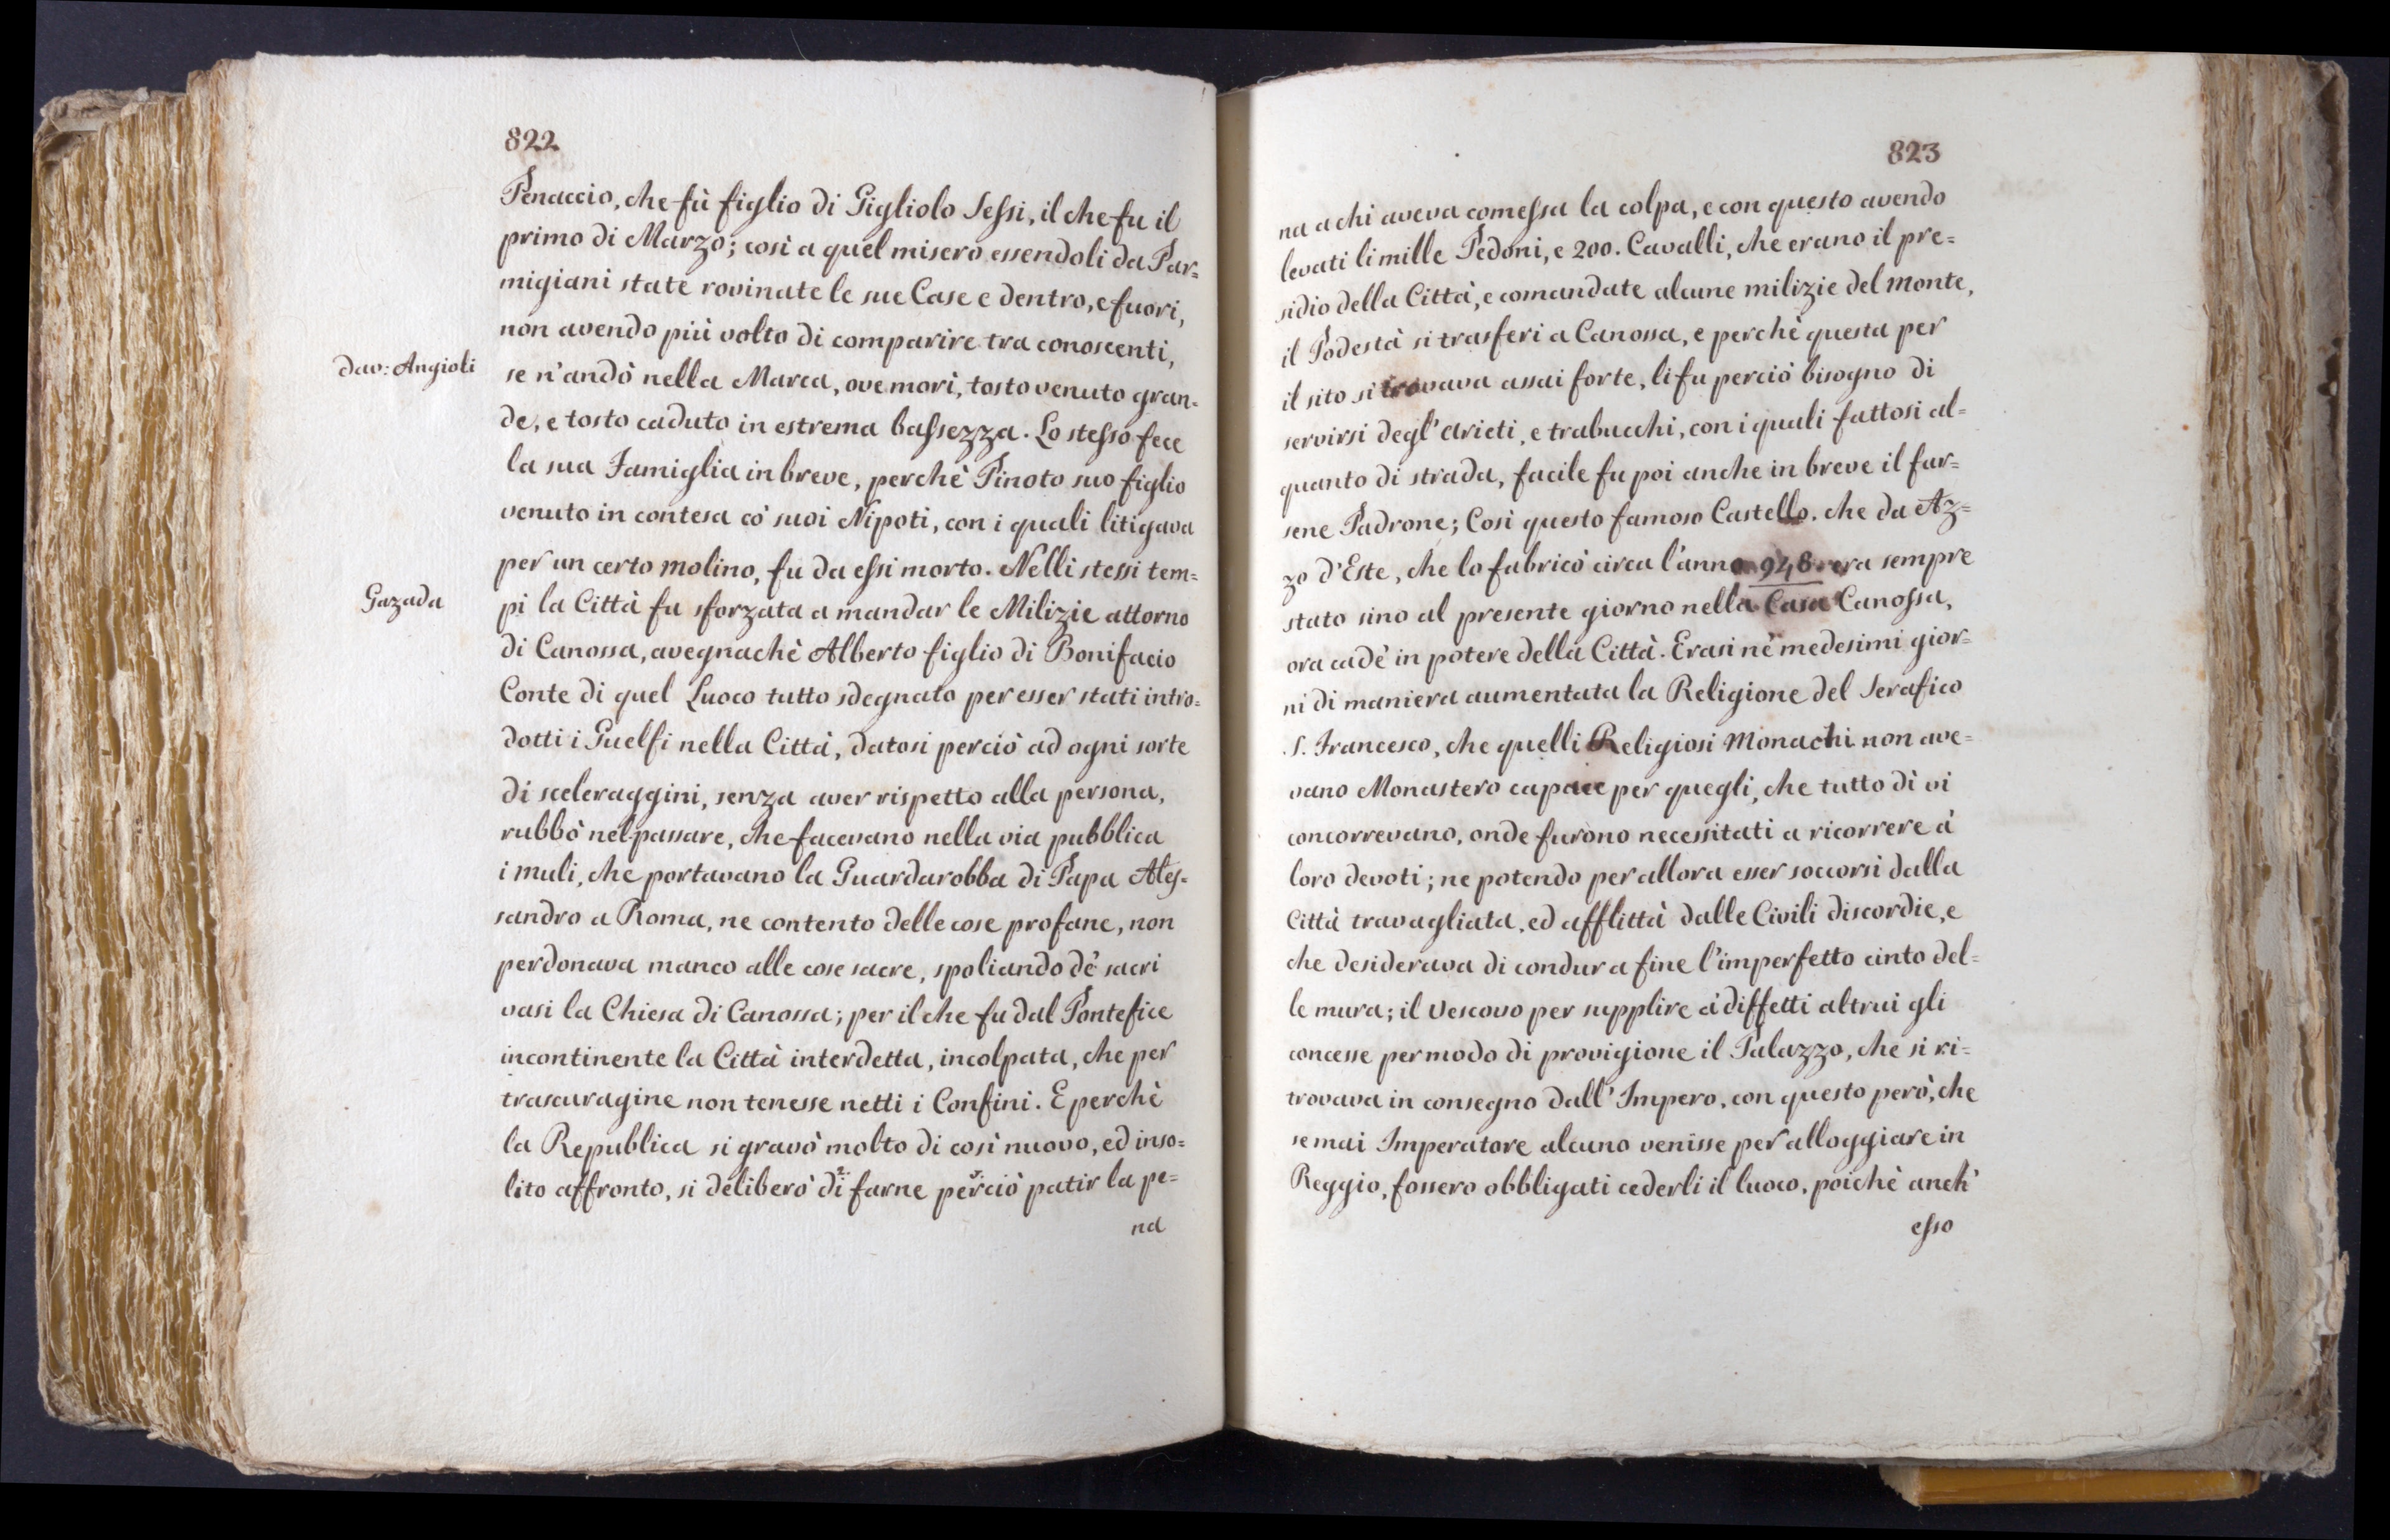 822
Penaccio, che fù figlio di Gigliolo Sessi, il che fu il
primo di Marzo; così a quel misero essendoli da Par=
migiani state rovinate le sue Case e dentro, e fuori,
non avendo più volto di comparire tra conoscenti,
dav: Angioli
se n'andò nella Marca, ove morì, tosto venuto gran=
de, e tosto caduto in estrema bassezza. Lo stesso fece
la sua Famiglia in breve, perchè Pinoto suo figlio
venuto in contesa co' suoi Nipoti, con i quali litigava
per un certo molino, fu da essi morto. Nelli stessi tem=
Gazada
pi la Città fu sforzata a mandar le Milizie attorno
di Canossa, avegnachè Alberto figlio di Bonifacio
Conte di quel Luoco tutto sdegnato per esser stati intro=
dotti i Guelfi nella Città, datosi perciò ad ogni sorte
di sceleraggini, senza aver rispetto alla persona,
rubbò nel passare, che facevano nella via pubblica
i muli, che portavano la Guardarobba di Papa Ales=
sandro a Roma, ne contento delle cose profane, non
perdonava manco alle cose sacre, spoliando de' sacri
vasi la Chiesa di Canossa; per il che fu dal Pontefice
incontinente la Città interdetta, incolpata, che per
trascuragine non tenesse netti i Confini. E perchè
la Republica si gravò molto di così nuovo, ed inso=
lito affronto, si deliberò di farne perciò patir la pe=
na
823
na a chi aveva comessa la colpa, e con questo avendo
levati li mille Pedoni, e 200. Cavalli, che erano il pre=
sidio della Città, e comandate alcune milizie del monte,
il Podestà si trasferi a Canossa, e perchè questa per
il sito si trovava assai forte, li fu perciò bisogno di
servirsi degl'Arieti, e trabucchi, con i quali fattosi al=
quanto di strada, facile fu poi anche in breve il far=
sene Padrone; Così questo famoso Castello. che da Az=
zo d'Este, che lo fabricò circa l'anno 948. era sempre
stato sino al presente giorno nella Casa Canossa,
ora cadè in potere della Città. Erasi ne' medesimi gior=
ni di maniera aumentata la Religione del Serafico
S. Francesco, che quelli Religiosi Monachi non ave=
vano Monastero capace per quegli, che tutto dì vi
concorrevano, onde furono necessitati a ricorrere a'
loro devoti; ne potendo per allora esser soccorsi dalla
Città travagliata, ed afflittà dalle Civili discordie, e
che desiderava di condur a fine l'imperfetto cinto del=
le mura; il Vescovo per supplire a' diffetti altrui gli
concesse per modo di provigione il Palazzo, che si ri=
trovava in consegno dall'Impero, con questo però, che
se mai Imperatore alcuno venisse per alloggiare in
Reggio, fossero obbligati cederli il luoco, poichè anch'
esso